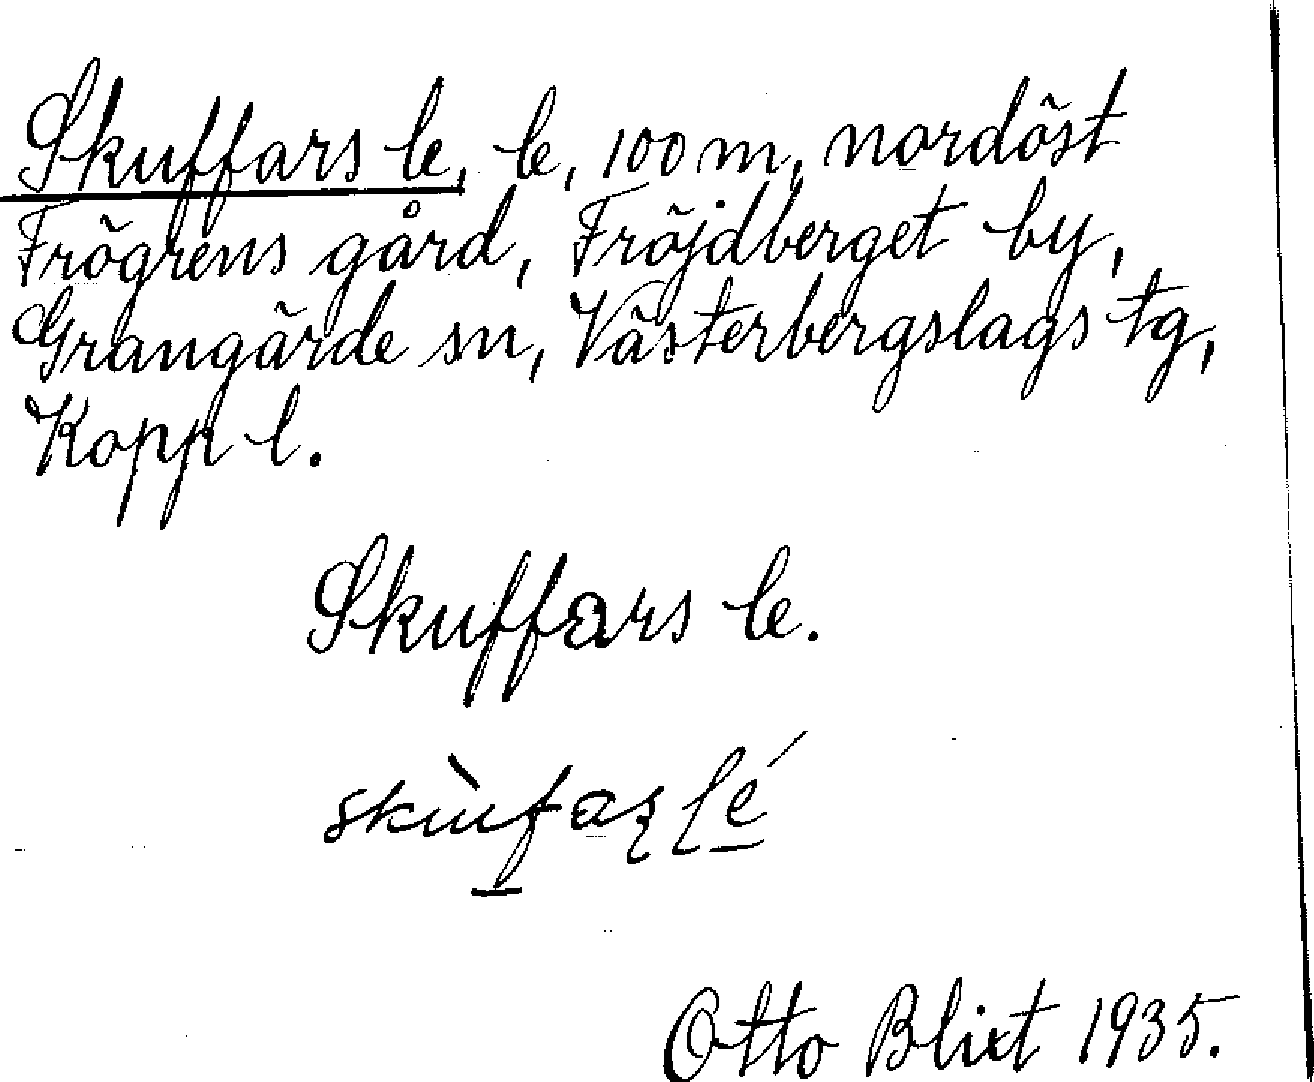 Skuffars le, le, 100 m, nordöst
Frögrens gård, Fröjdberget by,
Grangärde sn, Västerbergslags tg,
Kopp l.
Skuffars le.
Otto Blixt 1935.